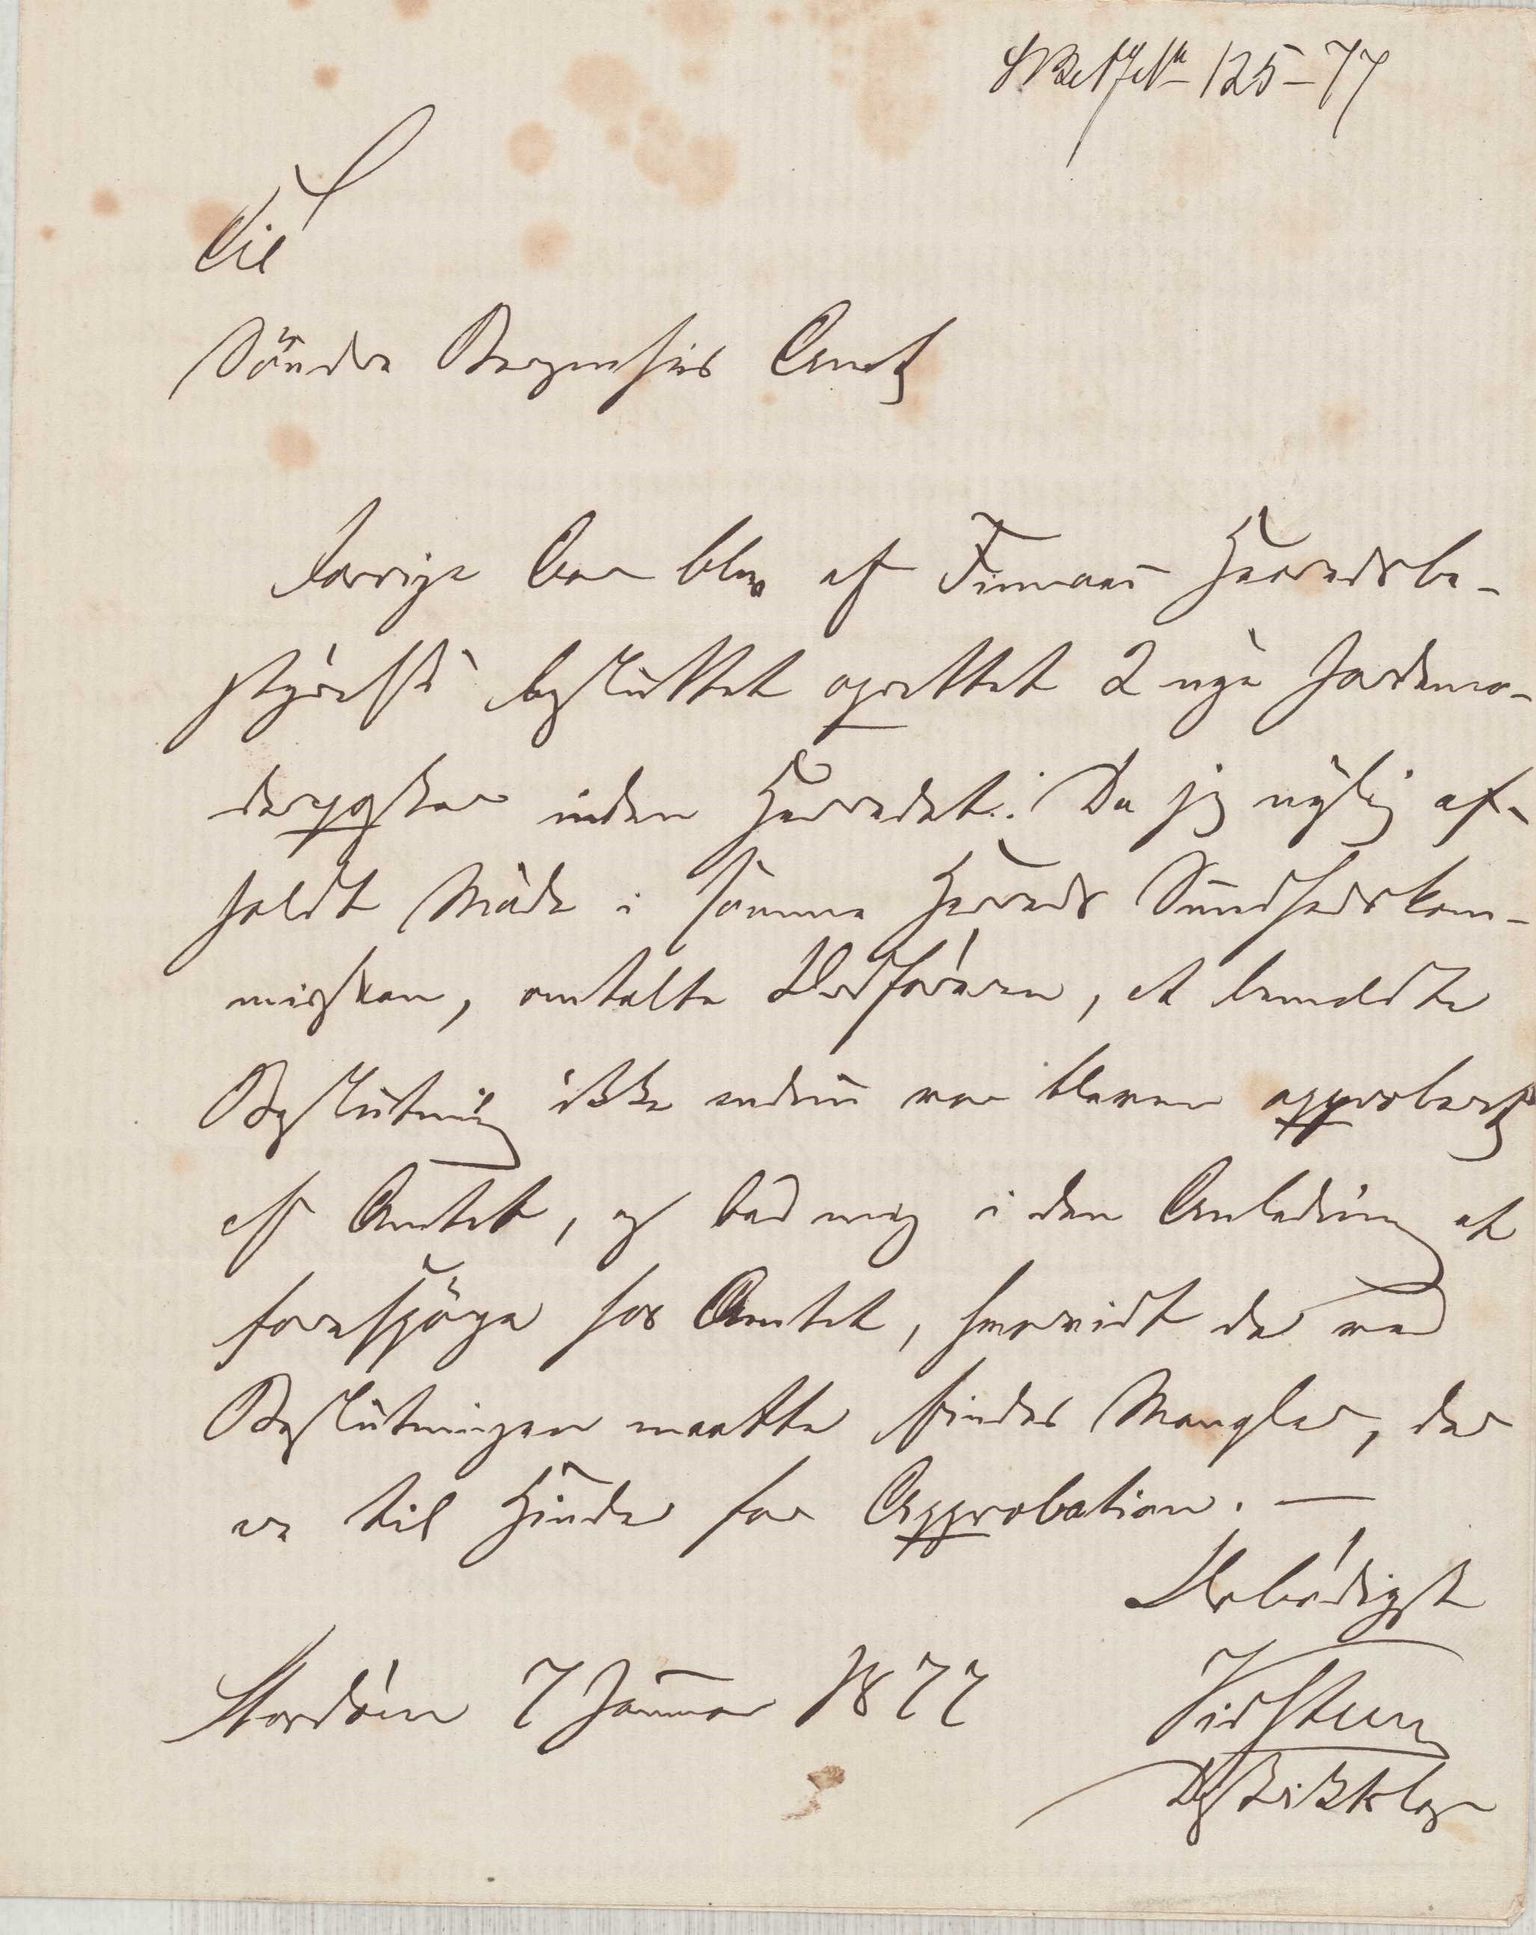 125-77
Til
Söndre Bergenhus Amt
Forrige Aar blev af Finnaas Herredsbe-
styrelse besluttet oprettet 2 nye Jordemo-
der inden Herredet. Da jeg nylig af-
holdt Möde i samme Herreds Sundhedskom-
mission, omtalte Ordföreren, at bemeldte
Beslutning ikke endnu var bleven approberet
af Amtet, og bad mig i den Anledning at
forespörge hos Amtet, hvorvidt der ved
Beslutningen maatte findes Mangler, der
ere til Hinder for Approbation. —
Ærbödigst
Stordöen 7 Januar 1877